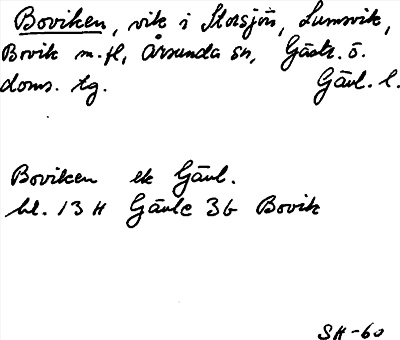 Boviken, vik i Storsjön, Lumsvik,
Bovik m.fl, Årsunda sn, Gästr. ö.
doms. tg. Gävl. l.
Boviken ek Gävl.
bl. 13 H Gävle 3b Bovik
SH-60